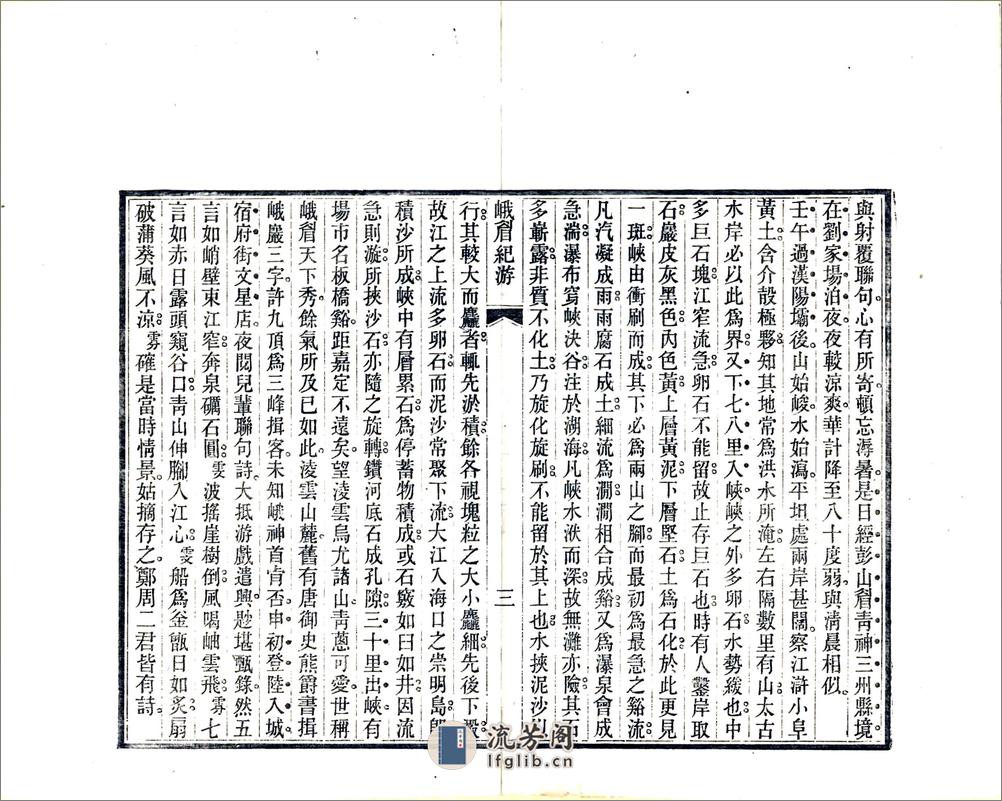 與射覆聯句。心有所寄。頓忘溽暑。是日經彭山眉青神三州縣境。
在劉家場泊。夜夜較涼爽。華計降至八十度弱。與清晨相似。
壬午過漢陽壩後。山始峻。水始瀉。平坦處兩岸甚闊。察江滸小阜。
黃土含介殼極夥。知其地常爲洪水所淹。左右隔數里有山。太古
水岸必以此爲界。又下七八里入峽。峽之外多卵石。水勢緩也。中
多巨石塊。江窄流急。卵石不能留。故止存巨石也。時有人鑿岸取
石。巖皮灰黑色。內色黃。上層黃泥。下層堅石。土爲石化。於此更見
一斑。峽由衝刷而成。其下必爲兩山之腳。而最初爲最急之谿流。
凡汽凝成雨。雨腐石成土。細流爲澗。澗相合成谿。又爲瀑泉。會成
急湍。瀑布穹峽決谷。注於湖海。凡峽水洑而深。故無灘亦險。其石
多嶄露。非質不化土。乃旋化旋刷。不能留於其上也。水挾泥沙以
峨眉紀游
三
行。其較大而麤者。輒先淤積。餘各視塊粒之大小麤細先後下澱。
故江之上流多卵石。而泥沙常聚下流。大江入海口之崇明島。卽
積沙所成。峽中有層累石。爲停蓄物積成。或石竅如臼如井。因流
急則漩。所挾沙石。亦隨之旋轉。鑽河底石成孔隙。三十里出峽。有
場市名板橋谿。距嘉定不遠矣。望淩雲烏尤諸山。青蔥可愛。世稱
峨眉天下秀。餘氣所及已如此。淩雲山麓。舊有唐御史熊爵書揖
峨巖三字。許九頂爲三峰揖客。未知峨神首肯否。申初登陸入城
宿府街文星店。夜閱兒輩聯句詩。大抵游戲遣興。尠堪甄錄。然五
言如峭壁束江窄。奔泉礪石圓。雯波搖崖樹倒。風喝岫雲飛。雰七
言如赤日露頭窺谷口。青山伸腳入江心。雯船爲釜甑日如炙。扇
破蒲葵風不涼。雰確是當時情景。姑摘存之。鄭周二君皆有詩。
流芳阁
lfglib.cn